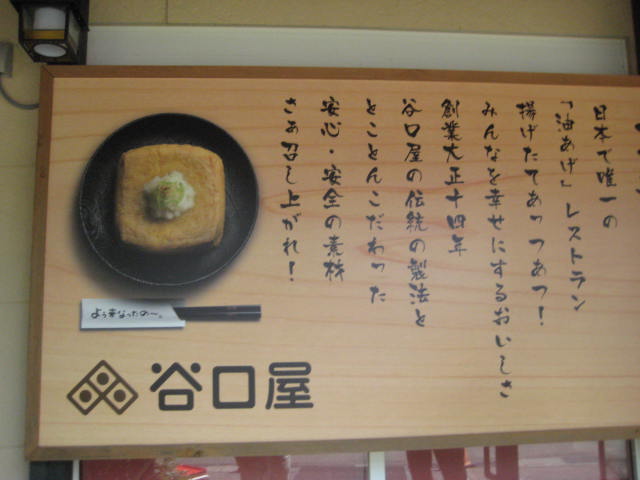 日本で唯一の
「油あげ」レストラン
揚げたてあっつあつ!
みんなを幸せにするおいしさ
創業大正十四年
谷口屋の伝統の製法と
とことんこだわった
安心・安全の素材
さぁ召し上がれ!
よう来なったの〜。
谷口屋